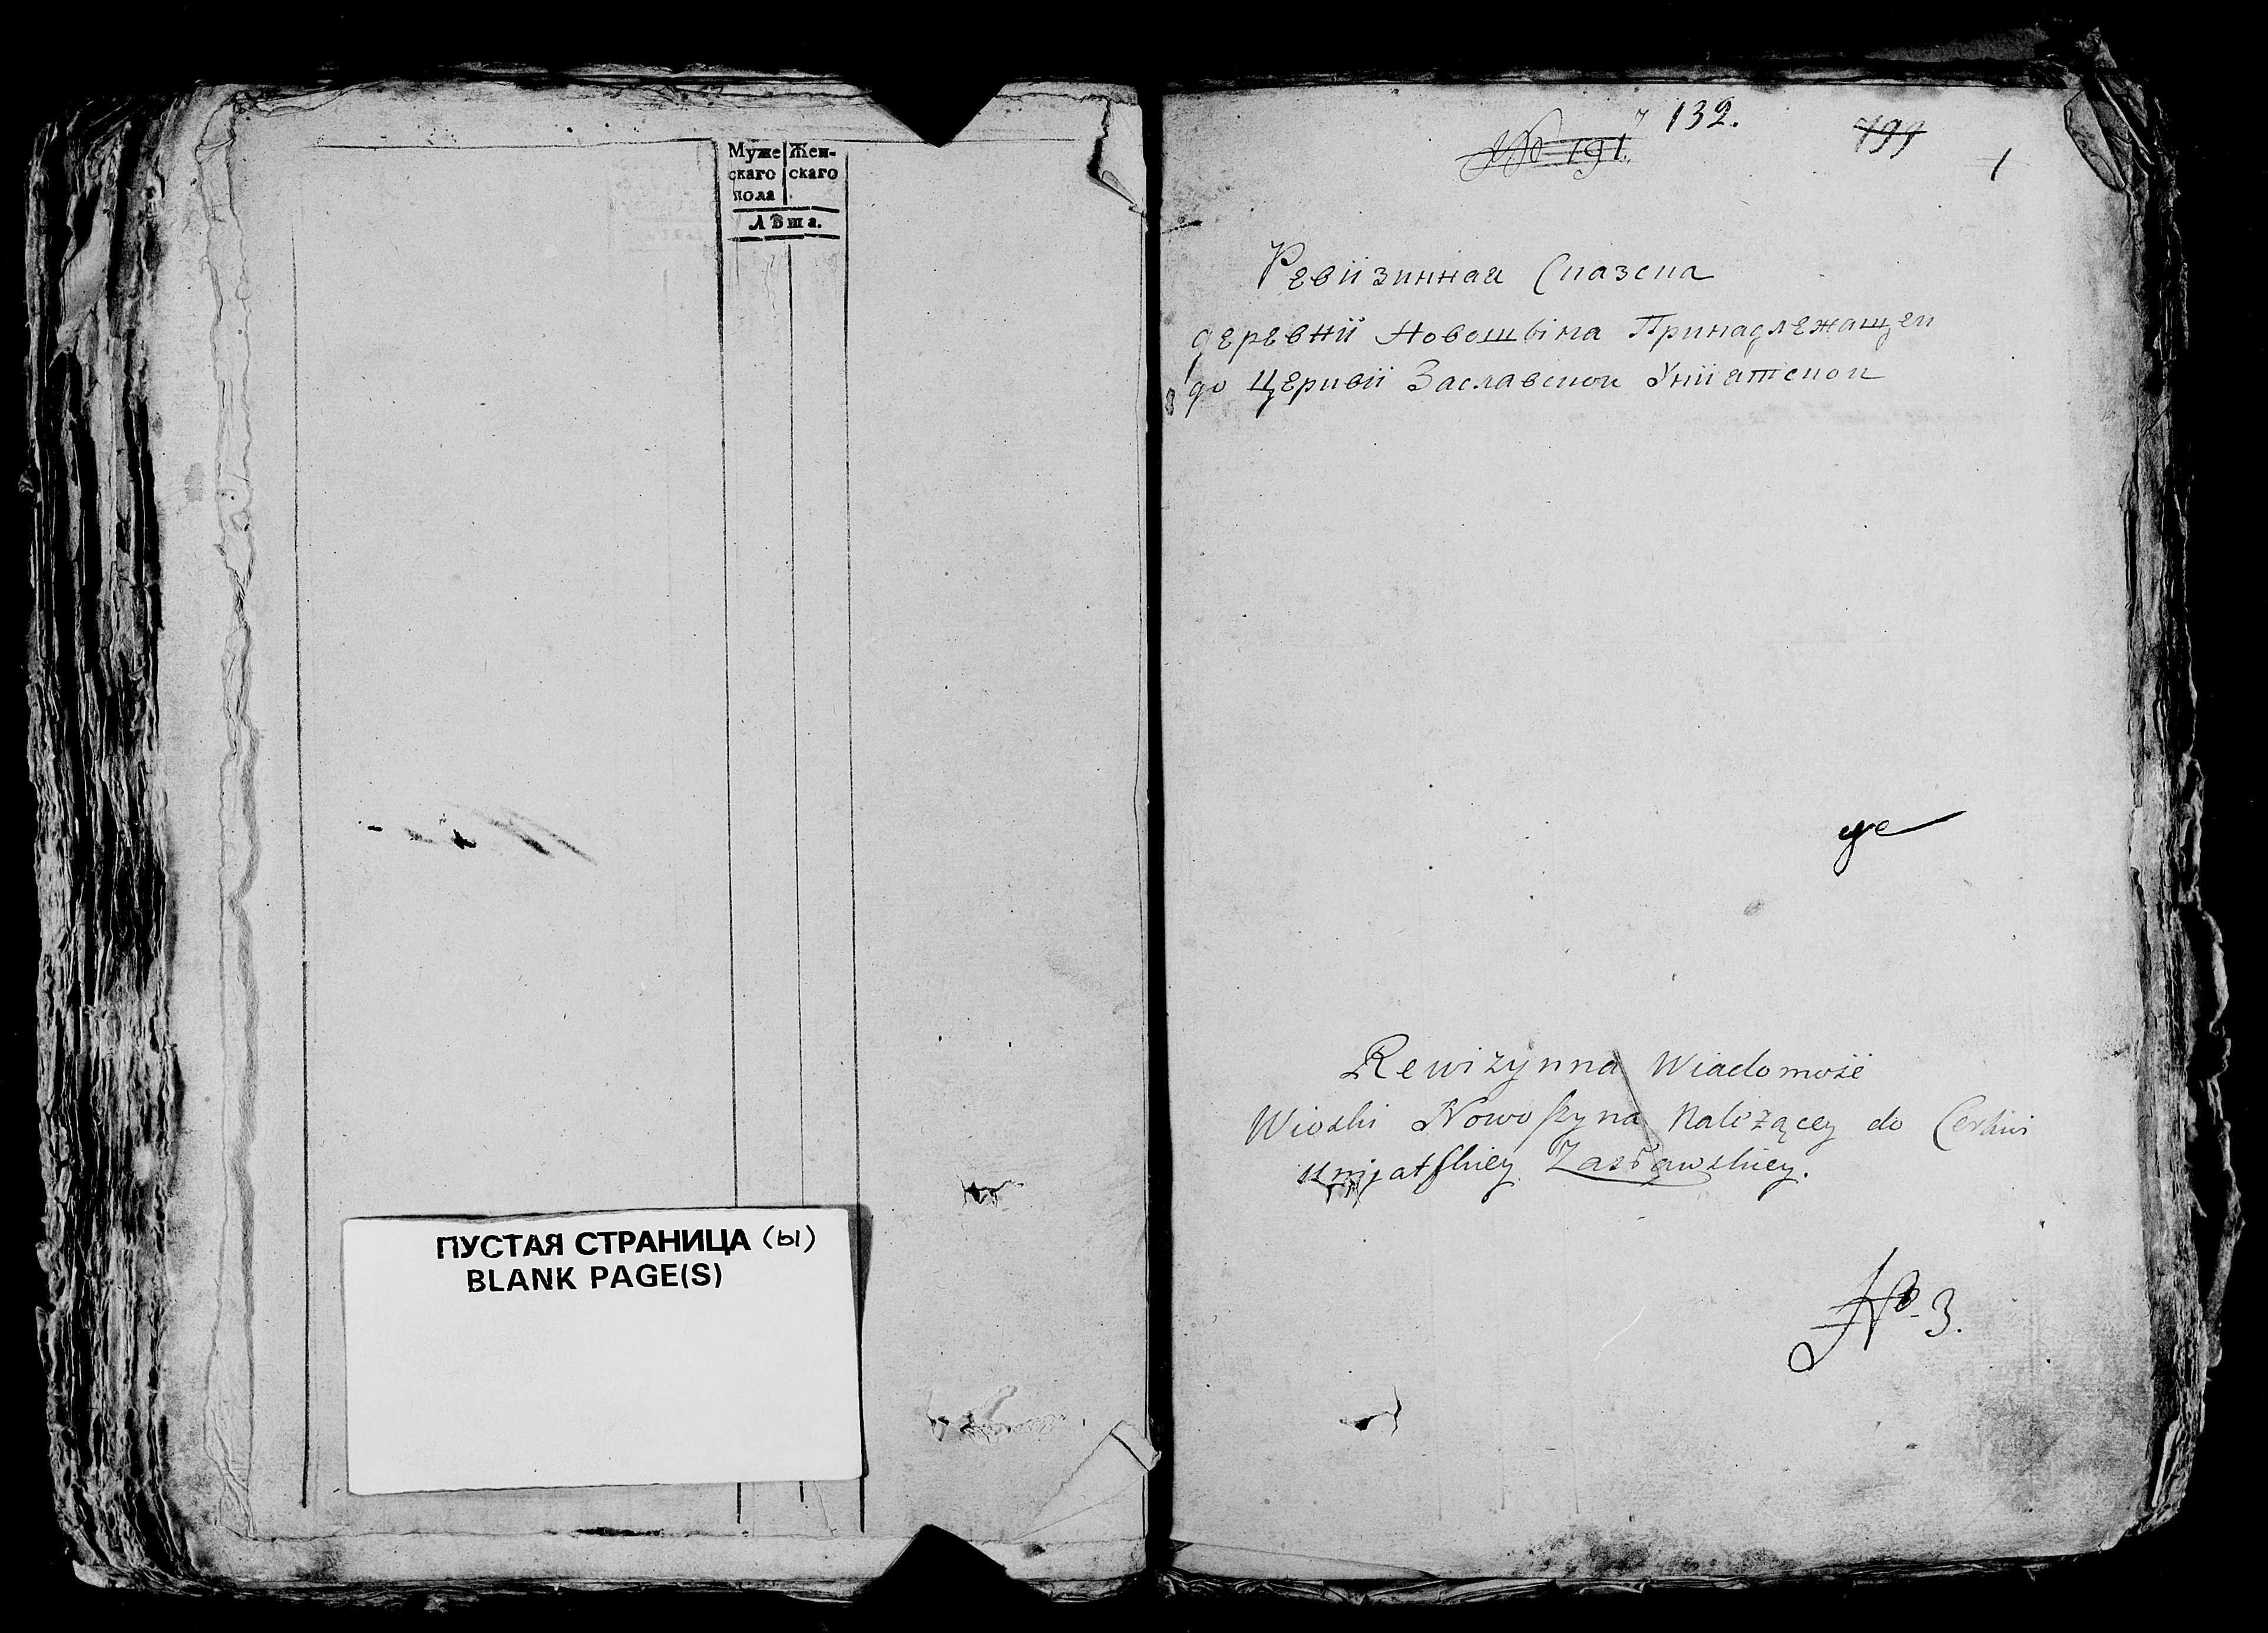 Муже Жен-
скаго скаго
пола
Лѣта.
ПУСТАЯ СТРАНИЦА (ы)
BLANK PAGE(S)
№ 191. 132. 799
1
Ревiизинная Сказка
деревнiи Новошьіна Принадлежащеи
до Церквiи Заславскои Унiятскои
Rewizynna Wiadomość
Wioski Nowoszyna Należącey do Cerkwi
unijatskiey Zasławskiey.
№ 3.